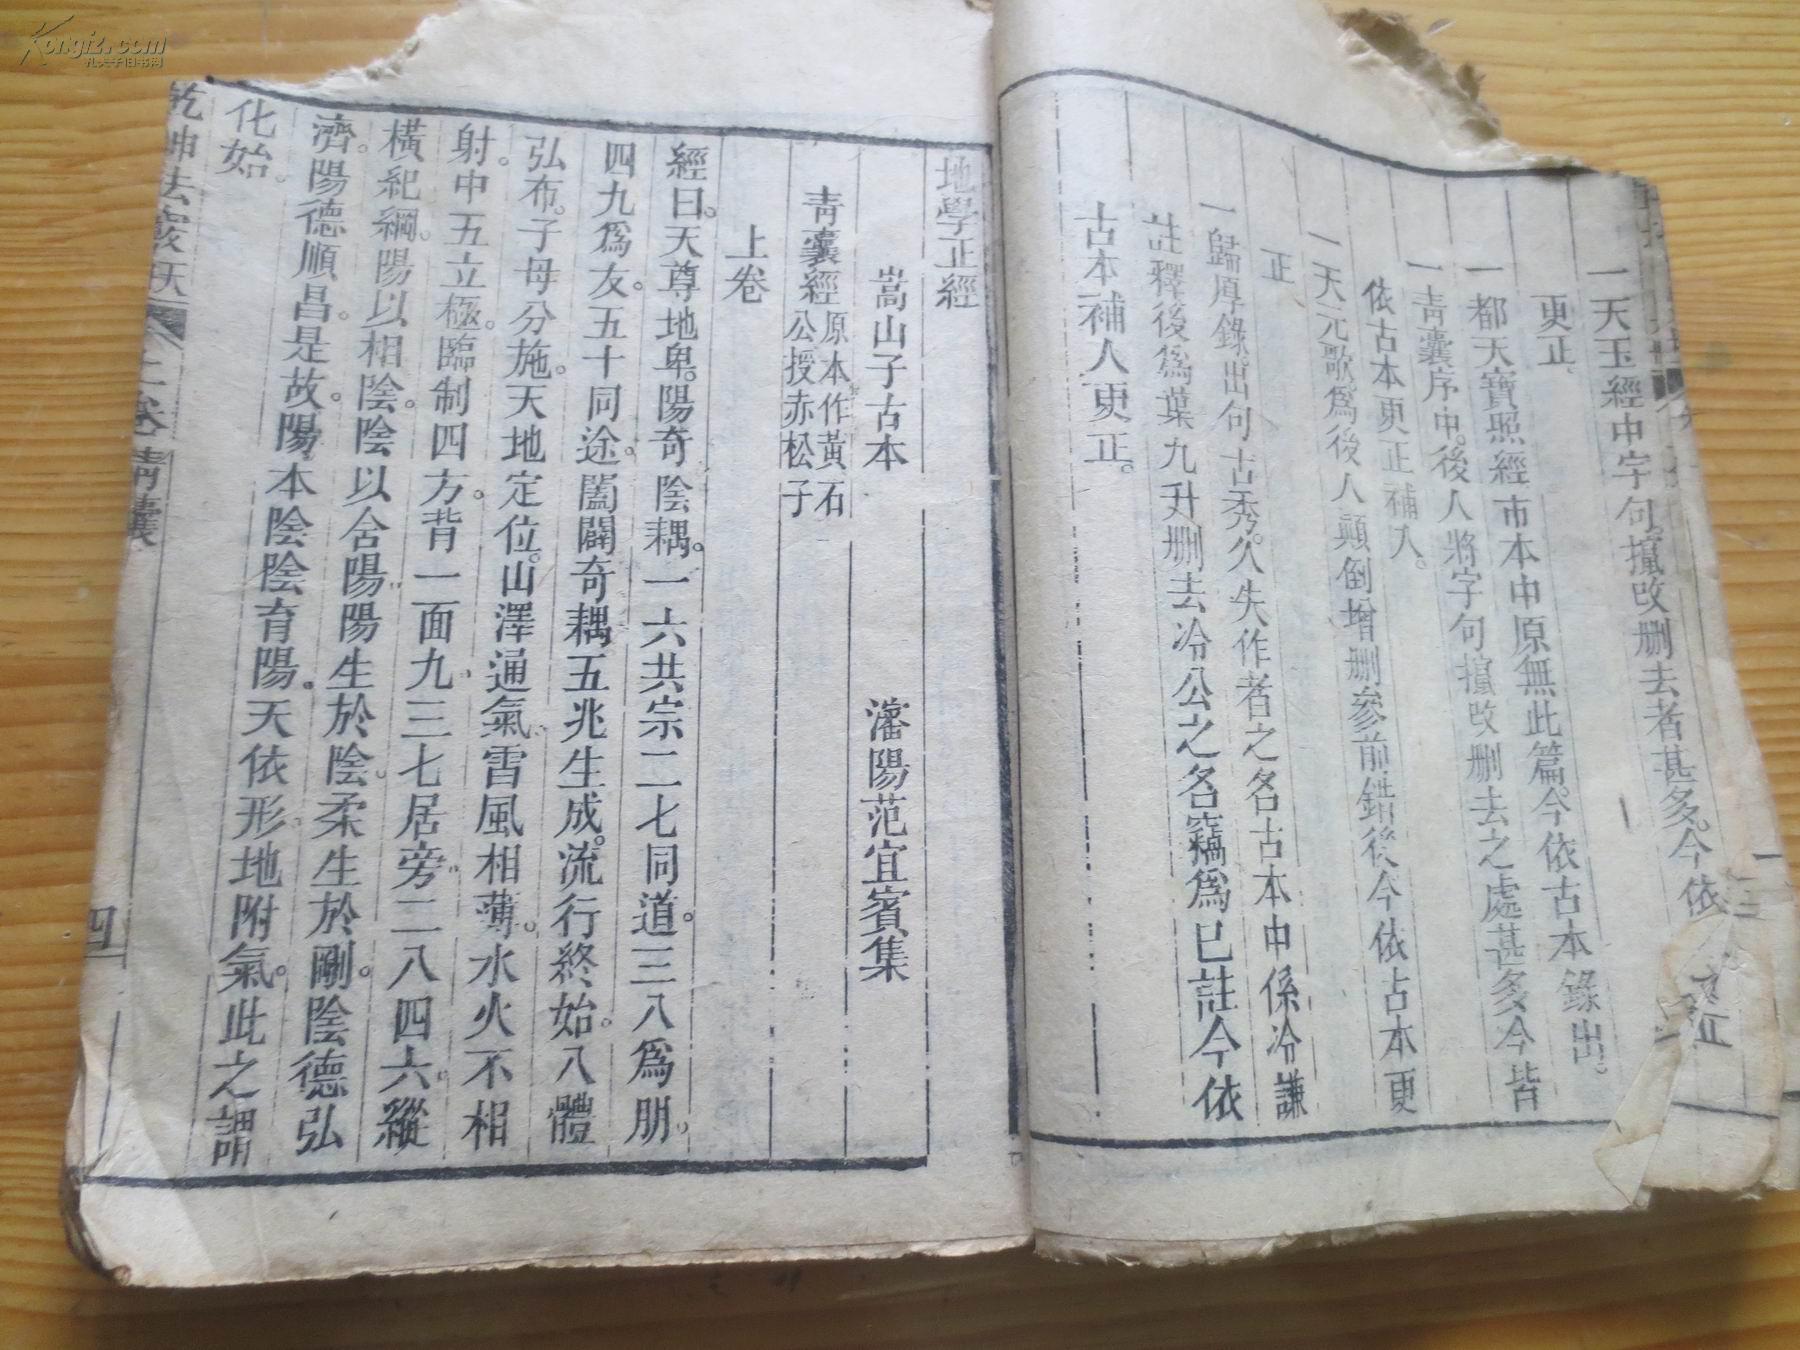 一天玉經中字句攛改刪去者甚多今依
更正
一都天寶照經市本中原無此篇今依古本錄出。
一青囊序中。後人將字句攛改刪去之處甚多今皆
依古本更正補入。
一天元歌爲後人顛倒增刪參前錯後今依古本更
正
一歸厚錄出句古秀久失作者之名古本中係冷謙
註釋後爲葉九升刪去冷公之名竊爲已註今依
古本補人更正。
地學正經
嵩山子古本 瀋陽范宜賓集
青囊經原本作黃石公授赤松子
上卷
經曰。天尊地卑。陽奇陰耦。一六共宗二七同道。三八爲朋。
四九爲友。五十同途。闔闢奇耦五兆生成。流行終始。八體
弘布。子母分施。天地定位。山澤通氣雷風相薄。水火不相
射。中五立極。臨制四方。背一面九三七居旁。二八四六。縱
橫紀綱。陽以相陰。陰以含陽陽生於陰。柔生於剛。陰德弘
濟。陽德順昌。是故。陽本陰陰育陽。天依形地附氣。此之謂
化始。
乾坤法竅 上卷 青囊
四
Kongfz.com
孔夫子旧书网